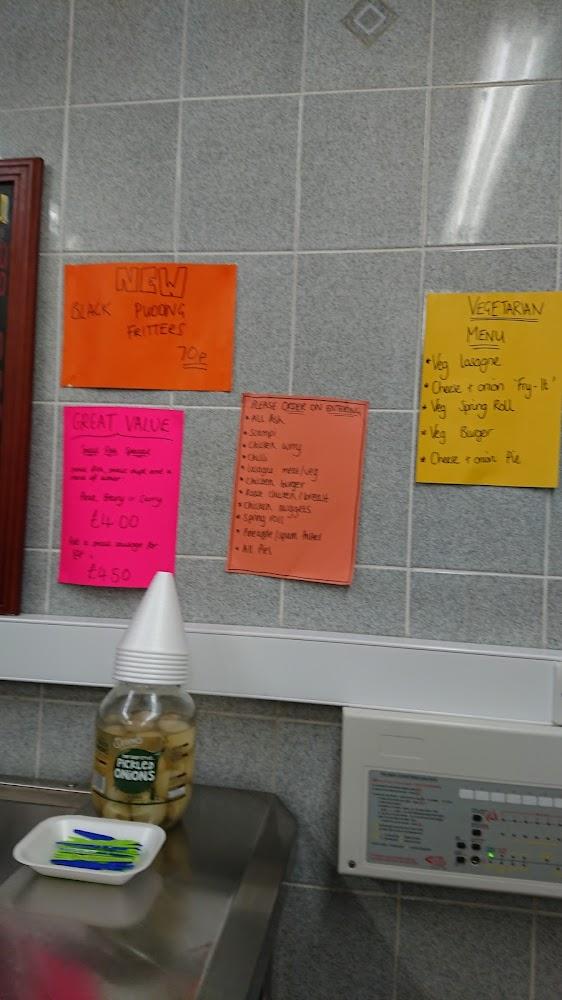 NEW
BLACK PUDDING
FRITTERS
70p
GREAT VALUE
Small Fish Special
small fish, small chips and a
Peas, Gravy or Curry
£4.00
Add a small sausage for
£4.50
PLEASE ORDER ON ENTERING
• All fish
• Scampi
• Chicken curry
• Chilli
• lasagne meat/veg
• Chicken burger
• Roast chicken/breast
• Chicken nuggets
• Spring roll
• Pineapple/spam fritter
• All Pies
VEGETARIAN
MENU
• Veg lasagne
• Cheese + onion "Fry-It"
• Veg Spring Roll
• Veg Burger
• Cheese + onion Pie
PICKLED
ONIONS